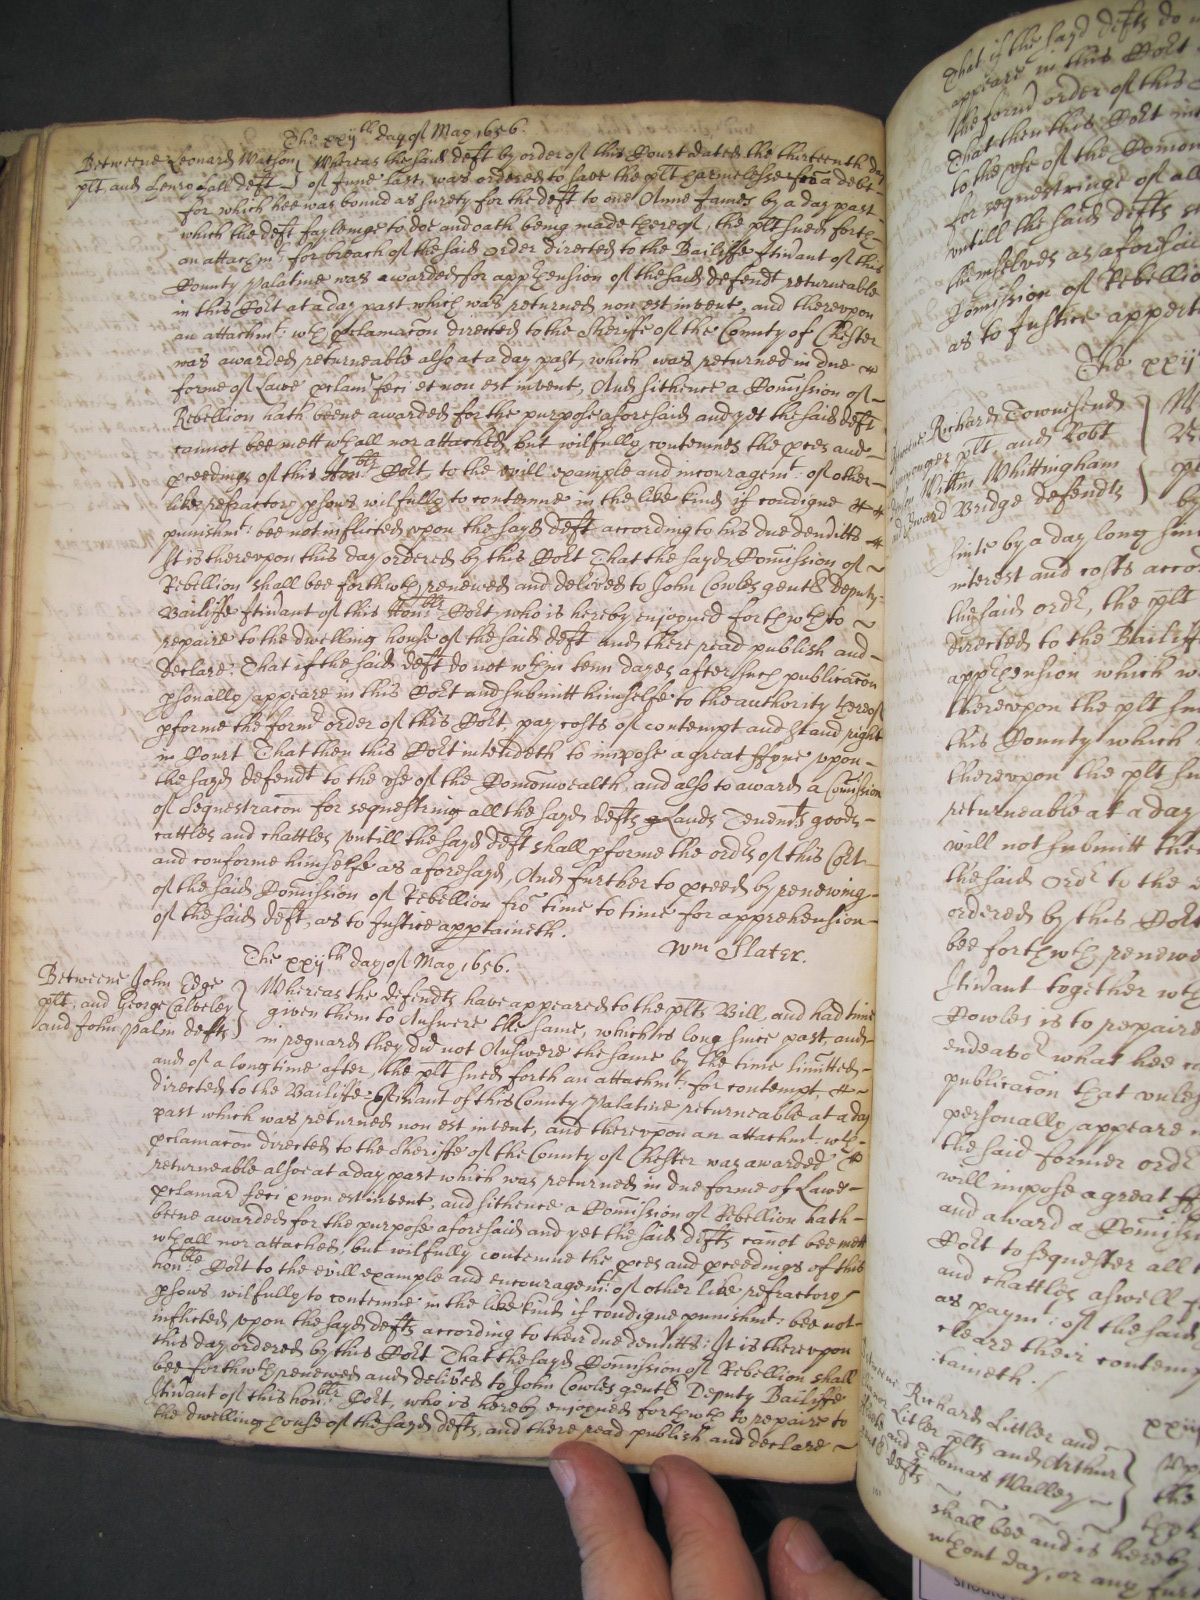 The xxijth day of May 1656.
Betweene Leonard Watson
plt, and Henry Hall deft
Whereas the said deft by order of this Court dated the thirteenth day
of June last, was ordered to save the plt harmelesse fro a debt
for which hee was bound as surety for the deft to one Anne James by a day past
which the deft fayleinge to doe and oath being made thereof, the plt sued forth
an attachmt: for breach of the said order directed to the Bailiffe Itinant of this
County Palatine was awarded for apphension of the said defendt returneable
in this Cort at a day past which was returned non est invent, and therevpon
an attachmt: wth pclamacon directed to the Sheriffe of the County of Chester
was awarded returneable also at a day past, which was returned in due
forme of Lawe pclam feci et non est invent, And sithence a Comission of
Rebellion hath beene awarded for the purpose aforesaid and yet the said deft
cannot bee mett wthall nor attached, but wilfully contemnes the pces and
pceedings of this Honble Cort, to the evill example and incouragemt: of other
like refractory psons wilfully to contemne in the like kind if condigne
punishmt: bee not inflicted vpon the sayd deft according to his due demitts
It is therevpon this day ordered by this Cort That the sayd Comission of
Rebellion shall bee forthwth renewed and delived to John Cowles gentl Deputy
Bailiffe Itinant of this Honble Cort, who is hereby enjoyned forthwth to
repaire to the dwelling house of the said deft and there read publish and
declare: That if the said deft do not wthin tenn dayes after such publicacon
psonally appeare in this Cort and submitt himselfe to the authority thereof
pforme the formr order of this Cort pay costs of contempt and stand right
in Court That then this Cort intendeth to impose a great ffyne vpon
the sayd defendt to the vse of the Comonwealth, and also to award a Comission
of Sequestracon for sequestring all the sayd defts Lands Tenemts goods
cattles and chattles vntill the sayd deft shall pforme the ordr of this Cort
and conforme himselfe as aforesayd, And further to pceed by renewing
of the said Comission of Rebellion fro time to time for apprehension
of the said deft, as to Justice apptaineth.
Wm Slater.
The xxijth day of May 1656.
Betweene John Edge
plt, and George Calveley
and John Palin defts
Whereas the defendts have appeared to the plts Bill, and had time
given them to Answere the same, which is long since past, and
in reguard they did not Answere the same by the time limitted
and of a long time after, the plt sued forth an attachmt: for contempt,
directed to the Bailiffe Itinant of this County Palatine returneable at a day
past which was returned non est invent, and therevpon an attachmt wth
pclamacon directed to the Sheriffe of the County of Chester was awarded
returneable alsoe at a day past which was returned in due forme of Lawe
pclamard feci non est invent, and sithence a Comission of Rebellion hath
beene awarded for the purpose aforesaid and yet the said defts canot bee mett
wthall nor attached, but wilfully contemne the pces and pceedings of this
honble Cort to the evill example and encouragemt: of other like refractory
psons wilfully to contemne in the like kind if condigne punishmt: bee not
inflicted vpon the sayd defts according to their due demitts: It is therevpon
this day ordered by this Cort That the sayd Comission of Rebellion shall
bee forthwth renewed and delived to John Cowles gentl Deputy Bailiffe
Itinant of this honble Cort, who is hereby enjoyned forthwth to repaire to
the dwelling house of the sayd defts, and there read publish and declare
That if the sayd defts do
appeare in this Cort
the formr order of this
That then this Cort
to the vse of the Comon
for sequestringe of all
vntill the said defts
themselves as aforesaid
Comission of Rebellio
as to Justice appert
The xxij
Richard Townesend
plt and Robt
Willm Whittingham
Bridge defendts
since by a day long since
interest and costs acco
the said ordr, the plt
directed to the Bailiff
apphension which w
therevpon the plt su
this County which
therevpon the plt su
returneable at a day
will not submitt the
the said ordr to the
ordered by this Cort
bee forthwth renewe
Itinant together wth
Cowles is to repaire
endeavor what hee c
publicacon that vnles
personally appeare
the said former ordr
will impose a great ff
and award a Comissi
Cort to sequester all
and chattles aswell f
as paymt: of the said
cleare their contemp
taineth.
xxij
Richard Littler and
Littler plts and Arthur
and Thomas Walley
defts
the
shall bee and is hereby
wthout day, or any furt